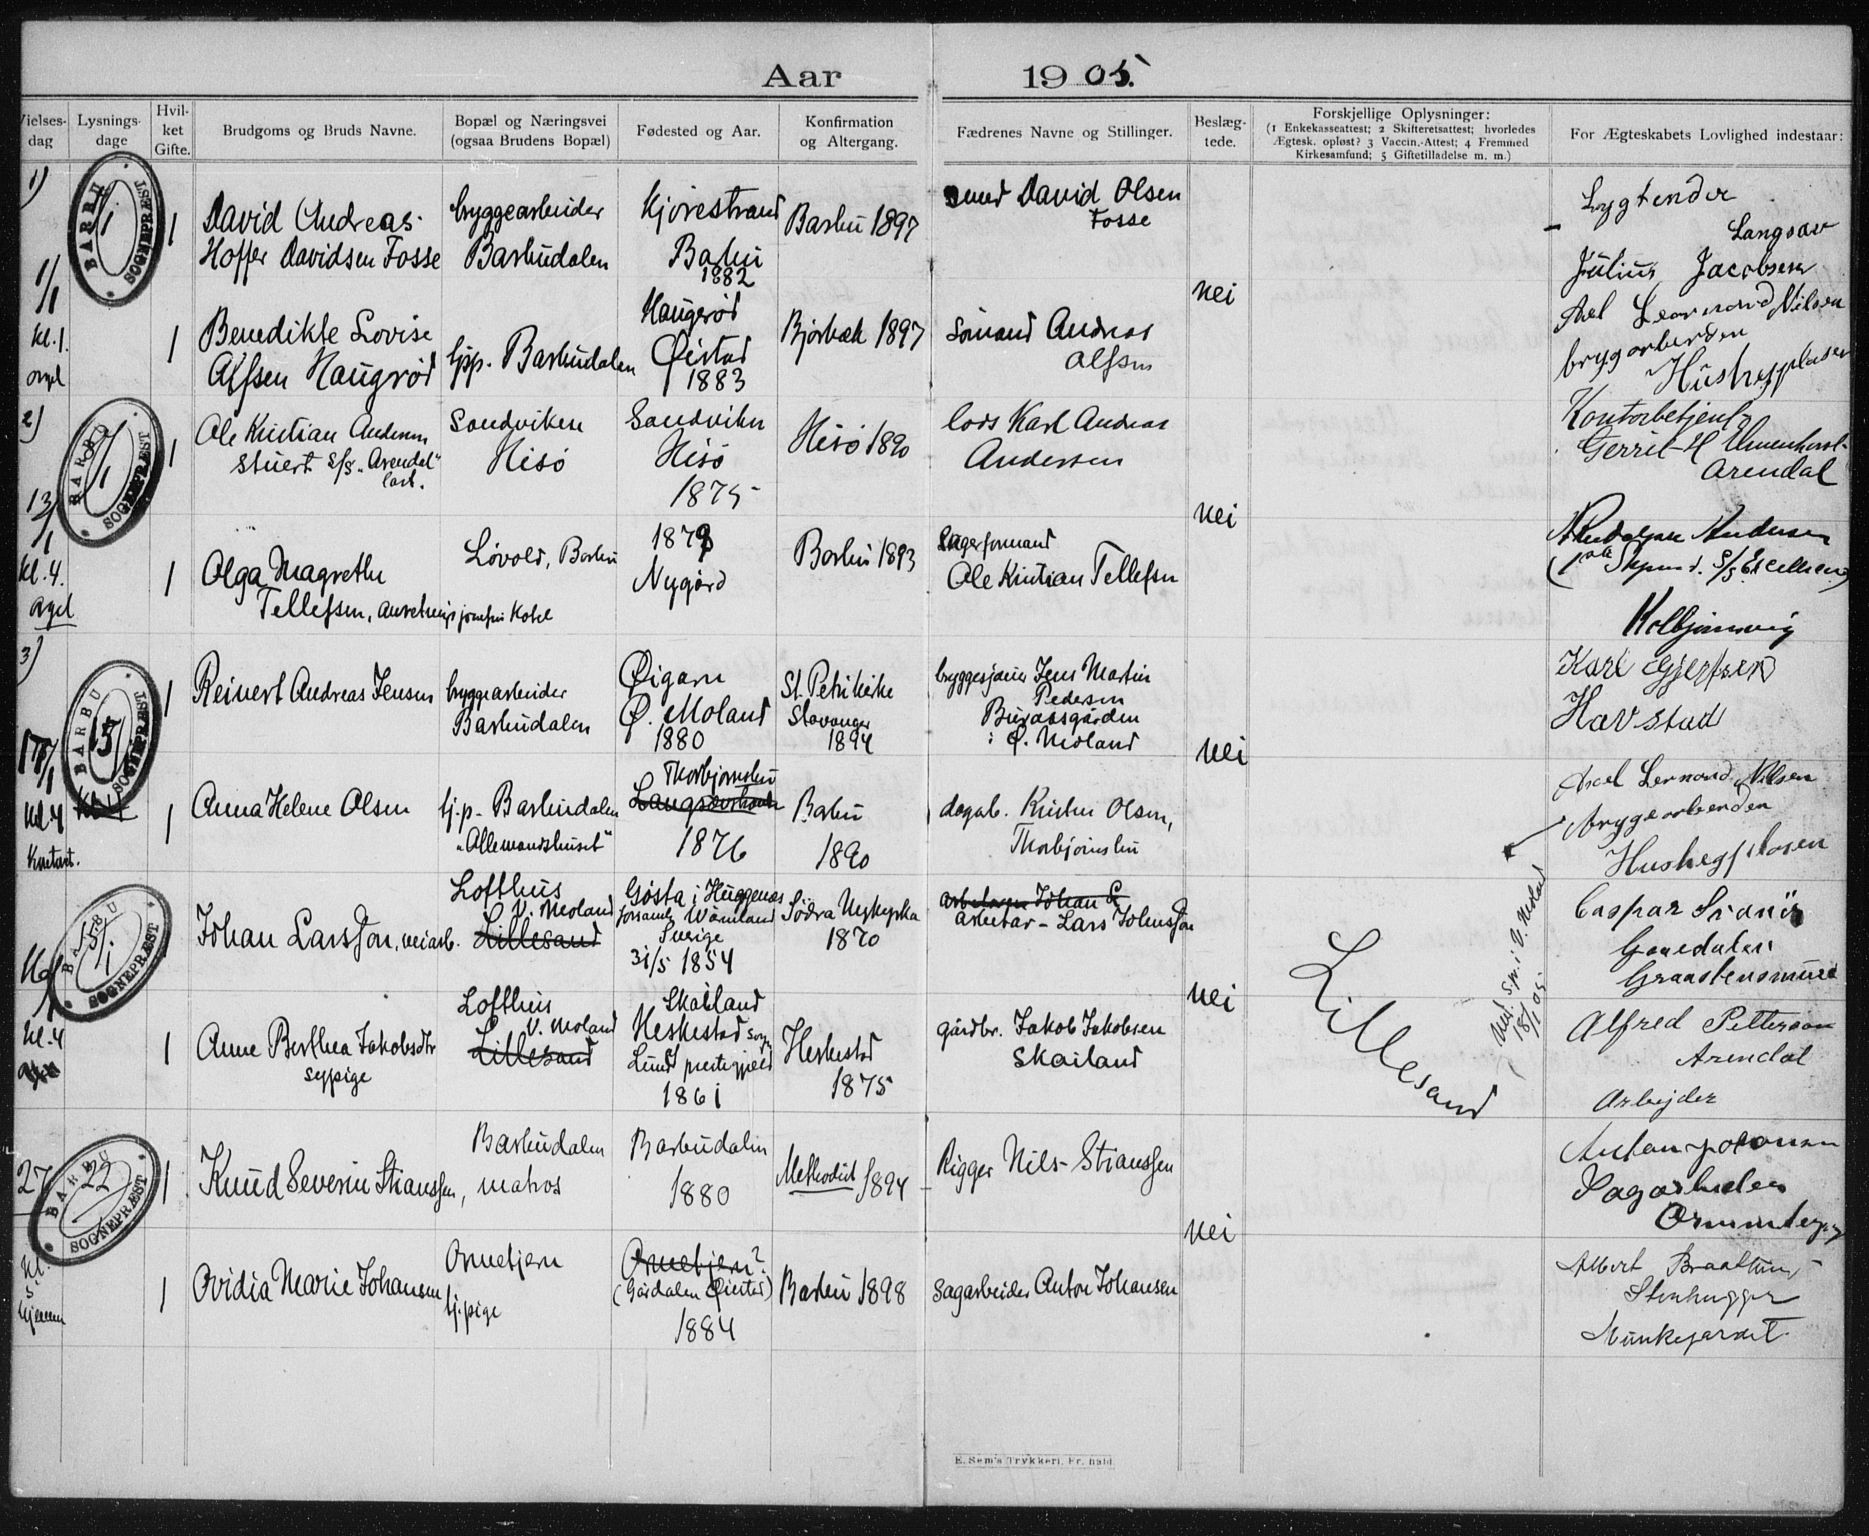 Aar 1905.
Vielses-dag
Lysnings-dage
Hvil-ket Gifte.
Brudgoms og Bruds Navne.
Bopæl og Næringsvei
(ogsaa Brudens Bopæl)
Fødested og Aar.
Konfirmation
og Altergang.
Fædrenes Navne og Stillinger.
Beslæg-tede.
Forskjellige Oplysninger:
(1 Enkekasseattest; 2 Skifteretsattest; hvorledes
Ægtesk. opløst? 3 Vaccin.-Attest; 4 Fremmed
Kirkesamfund; 5 Giftetilladelse m. m.)
For Ægteskabets Lovlighed indestaar:
1)
BARBU
1/1
SOGNEPRÆST
1
David Andreas
Hoffer Davidsen Fosse
bryggearbeider
Barbudalen
Kjørestrand
Barbu
1882
Barbu 1897
David Olsen
Fosse
Lygtender
Langsæv
Julius Jacobsen
1/1
Kl. 1.
1
Benedikte Lovise
Alfsen Haugrød
tjp. Barbudalen
Haugerød
Øiestad
1883
Bjorbæk 1897
Sømand Andreas
Alfsen
nei
Axel Leonnard Nilsen
brygarbeider
2)
BARBU
SOGNEPRÆST
1
Ole Kristian Andersen
Stuert S/S "Arendal"
Sandviken
Hisø
Sandviken
Hisø
1875
Hisø 1890
lods Karl Andreas
Andersen
Kontorbetjent
Gerrit H
Arendal
13/1
Kl. 4.
1
Olga Magrethe
Tellefsen,
Løvold, Barbu
1879
Nygård
Barbu 1893
Lagerformand
Ole Kristian Tellefsen
nei
Andersen
Kolbjørnsvig
3)
BARBU
15/1
SOGNEPRÆST
1
Reinert Andreas Jensen
bryggearbeider
Barbudalen
Øigarn
Ø. Moland
1880
St. Petri kirke
Stavanger
1894
bryggesjauer Jens Martin
Pedersen
Buraasgården
i Ø. Moland
Karl Gjertsen
Havstad
Kl. 4
1
Anna Helene Olsen
tj.p. Barbudalen
"Allemandshuset"
Thorbjørnsbu
Langsævhavn
1876
Barbu
1890
dagarb. Kristen Olsen,
Thorbjørnsbu
nei
Axel Lennard Nilsen
brygearbeider
BARBU
SOGNEPRÆST
Johan Larsson, veiarb.
Lofthus
V. Moland
Lillesand
Gøsta i Huggenæs
forsaml. Wärmland
Sverige
31/5 1854
Södra Ny kyrka
1870
Johan L
arbetar - Lars Johnsson
Caspar
Graastensmure
Kl. 4
1
Anne Berthea Jakobsdtr
sypige
Lofthus
V. Moland
Lillesand
Skailand
Heskestad sogn
Lunds prestegjeld
1861
Heskestad
1875
gårdbr. Jakob Jakobsen
Skailand
nei
Lillesand
V. Moland
18/1 05
Alfred Petterson
Arendal
Arbejder
27
BARBU
22
SOGNEPRÆST
1
Knud Severin Stianssen,
Barbudalen
matros
Barbudalen
1880
Methodist 1894
Rigger Nils Stianssen
Anton Johansen
Sagarbeider
nei
Kl. 5
hjemme
1
Ovidia Marie Johansen
Ormebjerg
tj.pige
Ormebjerg?
(Gårdalen Øiestad)
1884
Barbu 1898
Sagarbeider Anton Johansen
Albert Braathen
Stenhugger
Munkejordet
E. Sem's Trykkeri, Fr.hald.